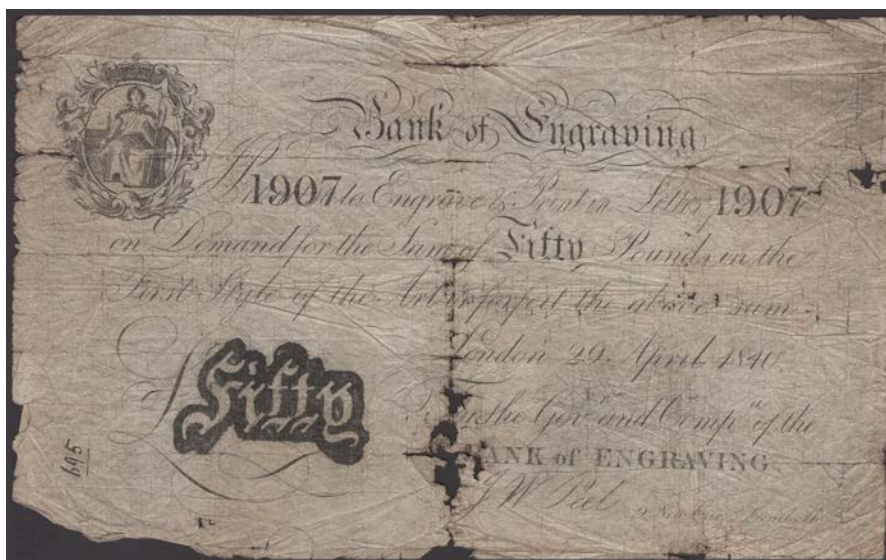 Bank of Engraving
1907 to Engrave & Print in Letter 1907
on Demand for the Sum of Fifty Pounds in the
First Style of the Art or forfeit the above sum
London 29 April 1840
For the Gov. and Comp.ª of the
BANK of ENGRAVING
£Fifty
J W Peel
695